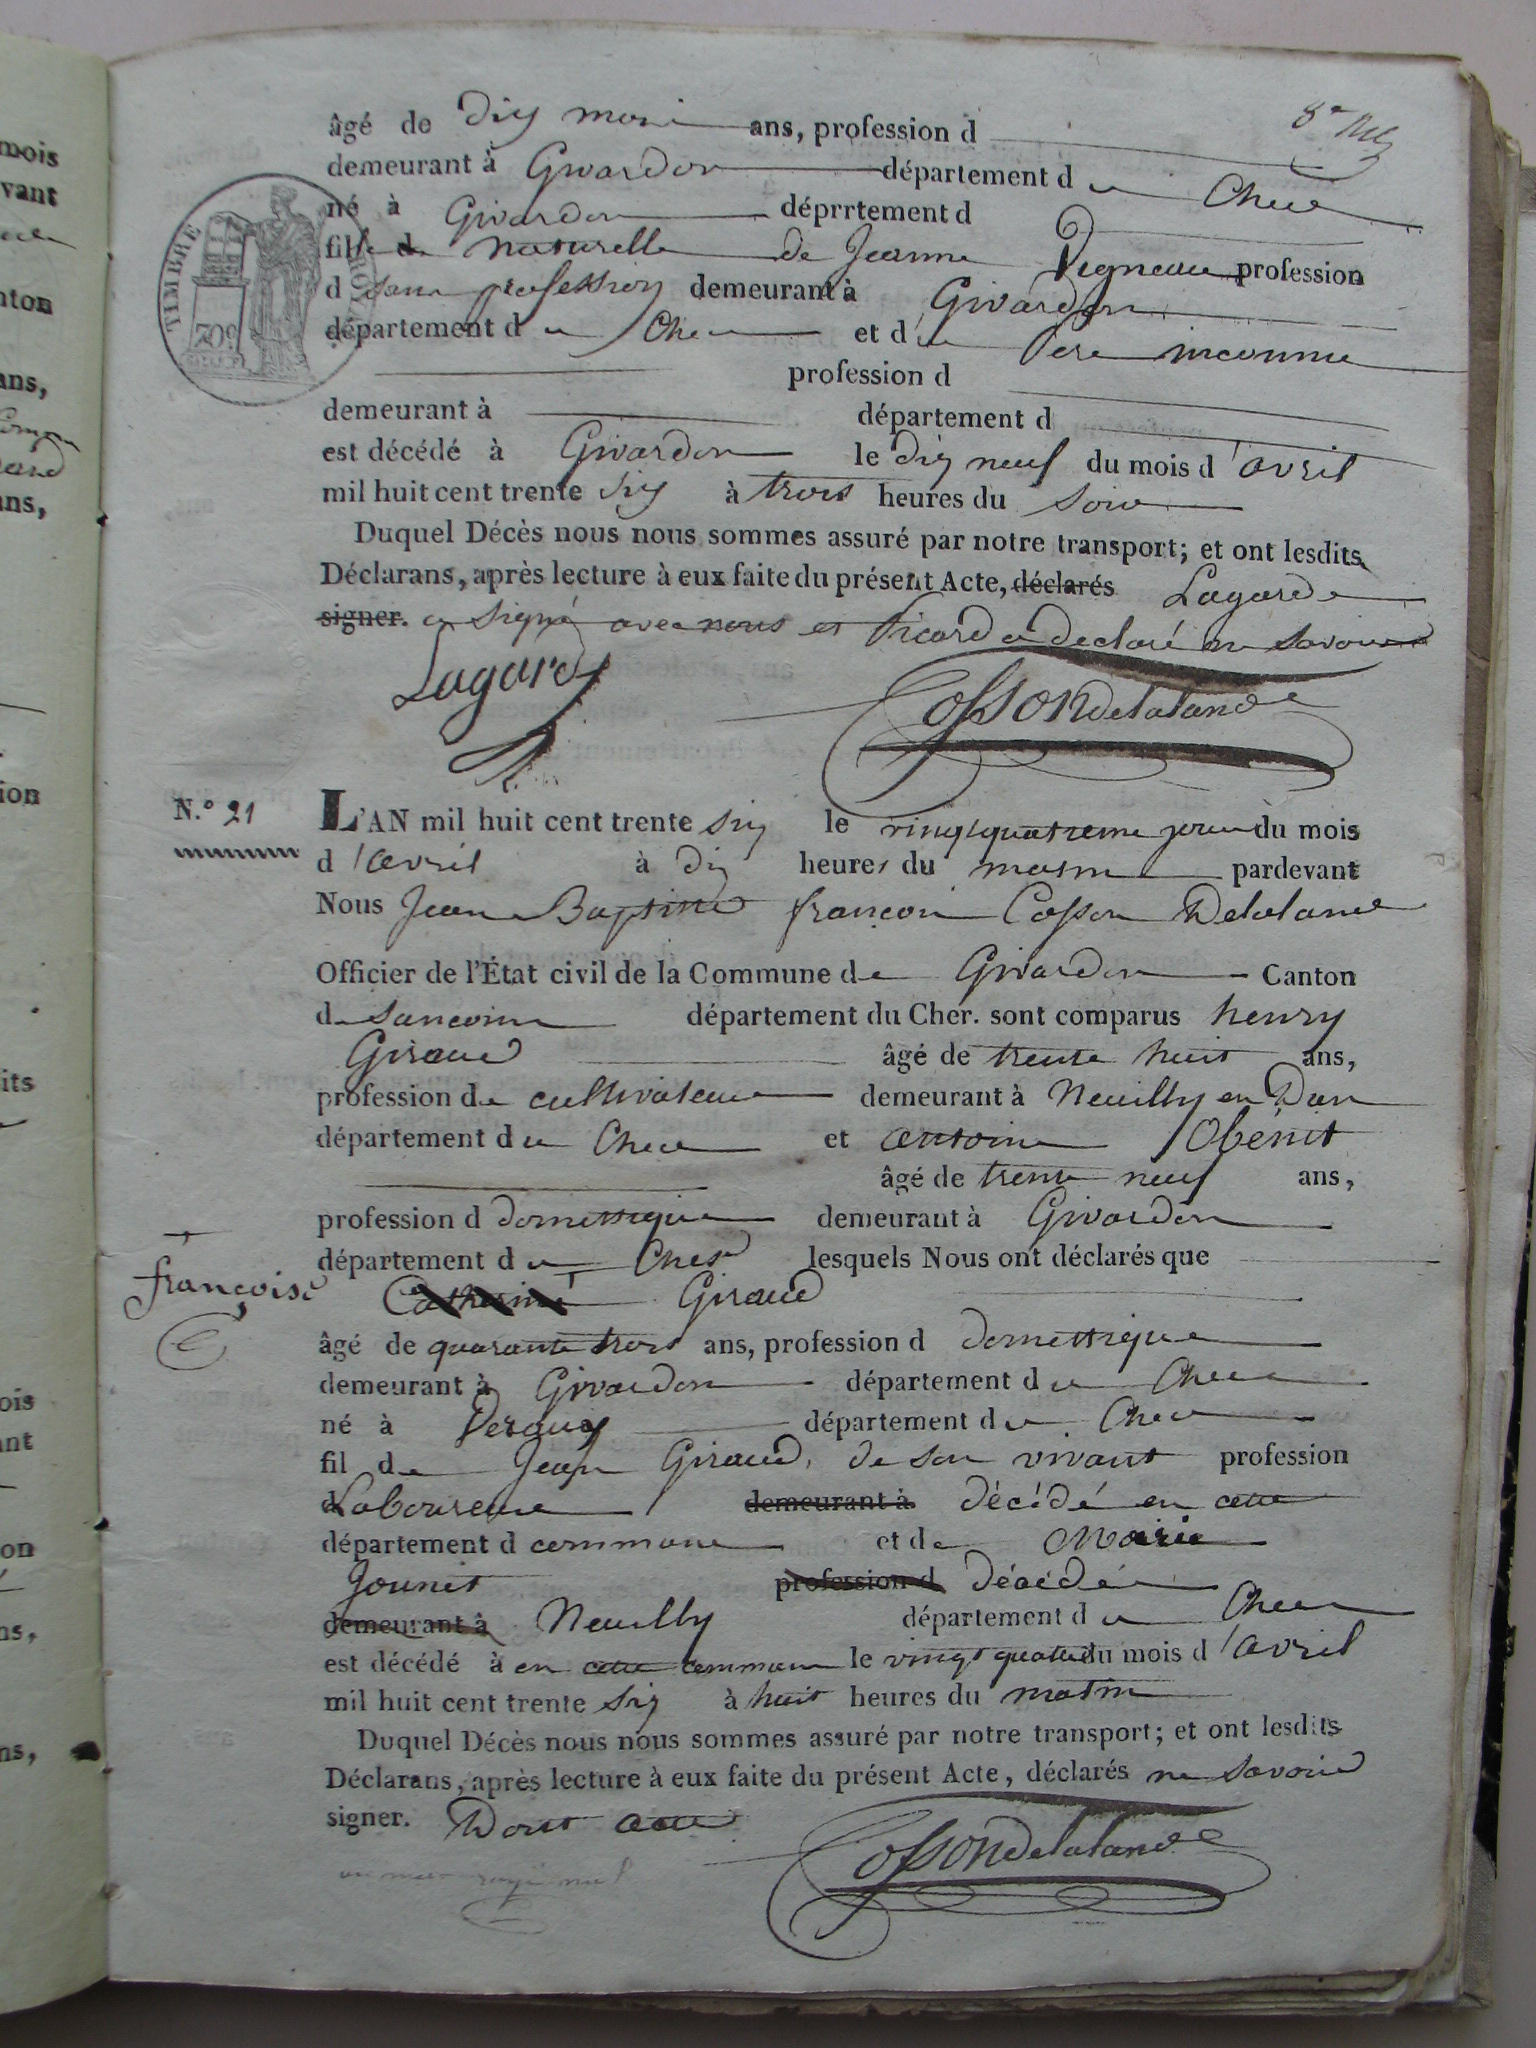 âgé de dix mois ans, profession d
demeurant à Givardon département du Cher
né à Givardon déprrtement d
fille de naturelle de Jeanne Vigneau profession
d sans profession demeurant à Givardon
département du Cher et de Père inconnu
profession d
demeurant à département d
est décédé à Givardon le dix neuf du mois d'avril
mil huit cent trente six à trois heures du soir
Duquel Décès nous nous sommes assuré par notre transport; et ont lesdits
Déclarans, après lecture à eux faite du présent Acte, déclarés Lagarde
signer. a signé avec nous et Picard a declaré ne savoir
Lagarde
Cosson delalande
TIMBRE
N.° 21
L'AN mil huit cent trente six le vingt quatrieme jour du mois
d'avril à dix heures du matin pardevant
Nous Jean Baptiste françois Cosson Delalande
Officier de l'État civil de la Commune de Givardon Canton
de Sancoins département du Cher. sont comparus henry
Giraud âgé de trente huit ans,
profession de cultivateur demeurant à Neuilly en Dun
département du Cher et antoine Obénit
âgé de trente neuf ans,
profession d domestique demeurant à Givardon
département du Cher lesquels Nous ont déclarés que
françoise
Catherine Giraud
âgé de quarante trois ans, profession d domestique
demeurant à Givardon département du Cher
né à Veraux département du Cher
fil de Jean Giraud, de son vivant profession
d Laboureur demeurant à décédé en cette
département d commune et de Marie
Jounit profession d décédée
demeurant à Neuilly département du Cher
est décédé à en cette commune le vingt quatre du mois d'avril
mil huit cent trente six à huit heures du matin
Duquel Décès nous nous sommes assuré par notre transport; et ont lesdits
Déclarans, après lecture à eux faite du présent Acte, déclarés ne savoir
signer. Dont acte
Cosson delalande
un mot rayé nul